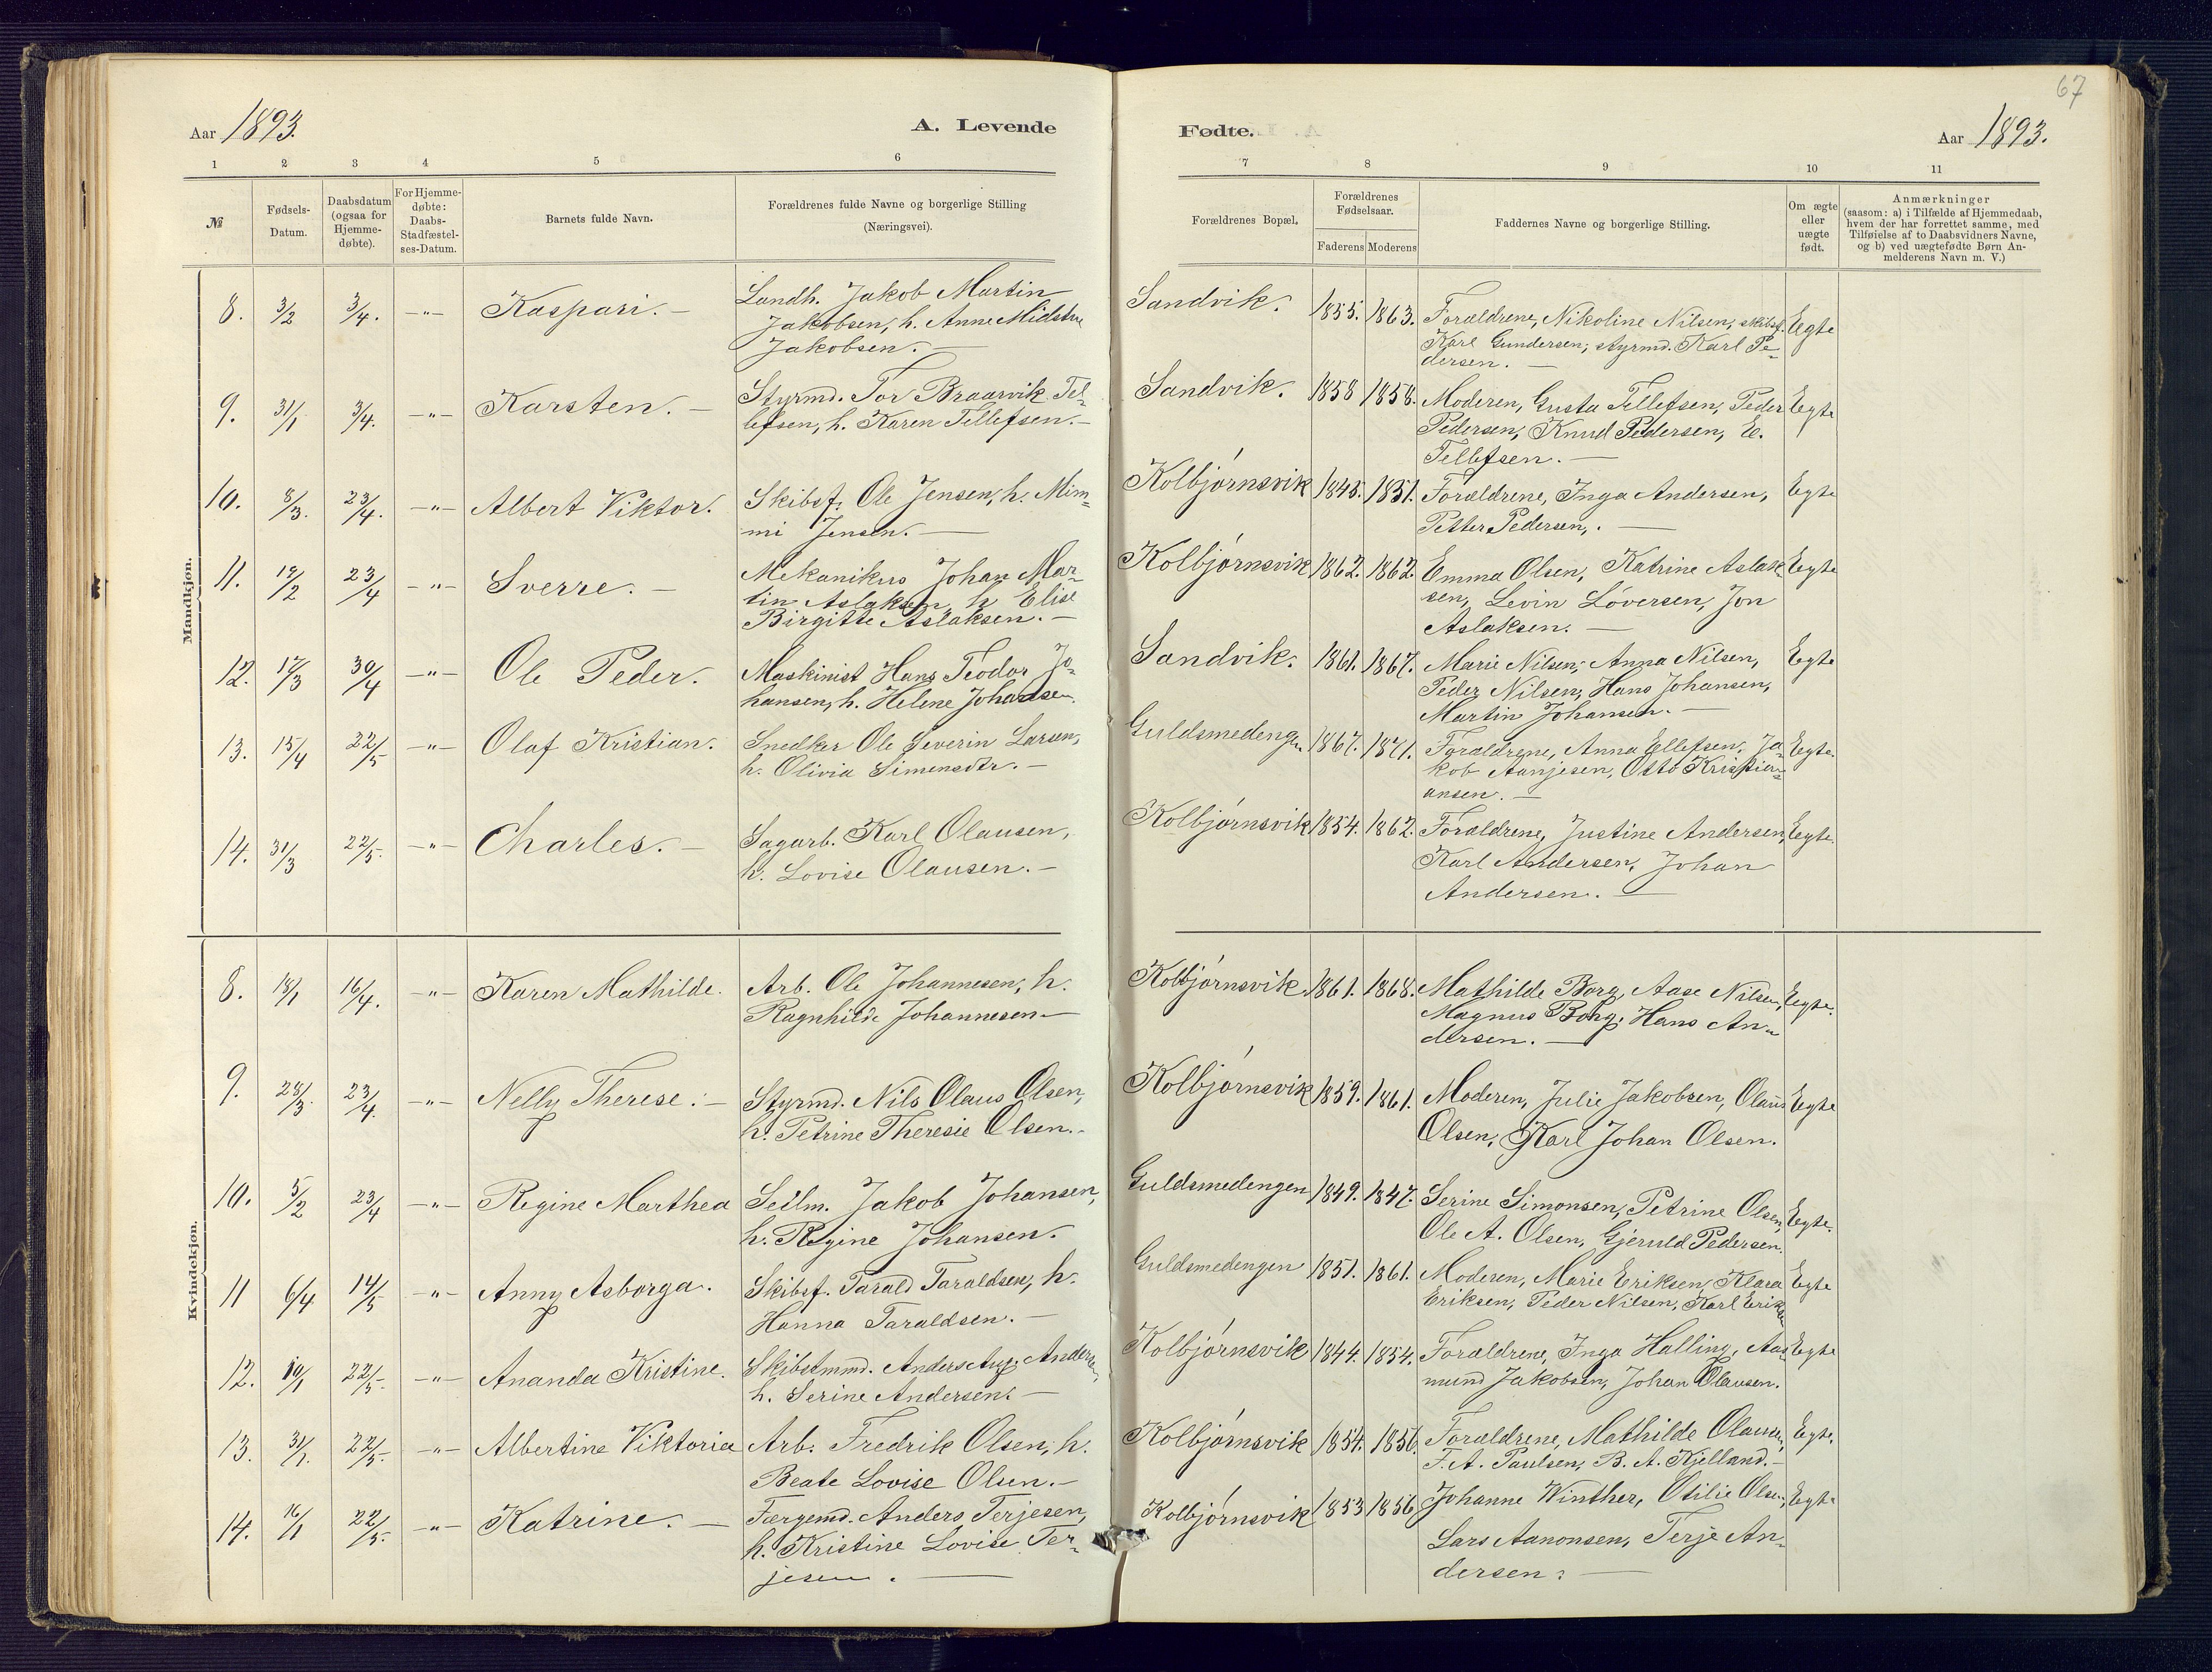 67
Aar 1893.
A. Levende
Fødte.
Aar 1893.
1 2 3 4 5 6
7 8 9 10 11
№
Fødsels-
Datum.
Daabsdatum
(ogsaa for
Hjemme-
døbte).
For Hjemme-
døbte:
Daabs-
Stadfæstel-
ses-Datum.
Barnets fulde Navn.
Forældrenes fulde Navne og borgerlige Stilling
(Næringsvei).
Forældrenes Bopæl,
Forældrenes
Fødselsaar.
Faderens Moderens
Faddernes Navne og borgerlige Stilling.
Om ægte
eller
uægte
født.
Anmærkninger
(saasom: a) i Tilfælde af Hjemmedaab,
hvem der har forrettet samme, med
Tilføielse af to Daabsvidners Navne,
og b) ved uægtefødte Børn An-
melderens Navn m. V.)
Mandkjøn.
8. 3/2 3/4. -"- Kaspari. -
Landh. Jakob Martin
Jakobsen, h. Anne
Jakobsen. -
Sandvik. 1855. 1863.
Forældrene, Nikoline Nilsen, skibsf.
Karl Gundersen, styrmd. Karl Pe-
dersen. -
Egte
9. 31/1 3/4. -"- Karsten. -
Styrmd. Tor Braarvik Tel-
lefsen, h. Karen Tellefsen. -
Sandvik. 1858 1858.
Moderen, Gusta Tellefsen, Peder
Pedersen, Knud Pedersen, E.
Tellefsen. -
Egte
10. 8/3. 23/4. -"- Albert Viktor.
Skibsf. Ole Jensen, h. Mim-
mi Jensen. -
Kolbjørnsvik 1845. 1851.
Forældrene, Inga Andersen,
Petter Pedersen,. -
Egte
11. 19/2 23/4 -"- Sverre. -
Mekanikus Johan Mar-
tin Aslaksen, h. Elise
Birgitte Aslaksen. -
Kolbjørnsvik 1862. 1862.
Emma Olsen, Katrine Aslak-
sen, Levin Løversen, Jon
Aslaksen. -
Egte
12. 17/3 30/4 -"- Ole Peder.
Maskinist Hans Teodor Jo-
hansen, h. Helene Johansen.
Sandvik. 1861. 1867.
Marie Nilsen, Anna Nilsen,
Peder Nilsen, Hans Johansen,
Martin Johansen. -
Egte
13. 15/4 22/5 -"- Olaf Kristian.
Snedker Ole Severin Larsen,
h. Olivia Simensdtr. -
Guldsmedengen 1867. 1871.
Forældrene, Anna Ellefsen, Ja-
kob Aanjesen, Otto Kristia-
ansen. -
Egte.
14. 31/3 22/5. -"- Charles. -
Sagarb. Karl Olausen,
h. Lovise Olausen. -
Kolbjørnsvik 1854. 1862.
Forældrene, Justine Andersen,
Karl Andersen, Johan
Andersen. -
Egte.
Kvindekjøn.
8. 18/1 16/4. -"- Karen Mathilde.
Arb. Ole Johannesen, h.
Ragnhilde Johannesen -
Kolbjørnsvik. 1861. 1868.
Mathilde Borg, Aase Nilsen,
Magnus Borg, Hans An-
dersen. -
Egte.
9. 28/3. 23/4. -"- Nelly Therese. -
Styrmd. Nils Olaus Olsen,
h. Petrine Theresie Olsen. -
Kolbjørnsvik 1859. 1861.
Moderen, Julie Jakobsen, Olaus
Olsen, Karl Johan Olsen.
Egte
10. 5/2 23/4 -"- Regine Marthea
Seilm. Jakob Johansen,
h. Regine Johansen.
Guldsmedengen 1849. 1847.
Serine Simonsen, Petrine Olsen,
Ole A. Olsen, Gjeruld Pedersen.
Egte.
11 6/4 14/5 -"- Anny Asborga.
Skibsf. Tarald Taraldsen, h.
Hanna Taraldsen. -
Guldsmedengen 1851. 1861.
Moderen, Marie Eriksen, Klara
Eriksen, Peder Nilsen, Karl Eriksen
Egte
12. 10/1 22/5. -"- Ananda Kristine.
Skibstmmd. Anders Aug. Andersen,
h. Serine Andersen. -
Kolbjørnsvik 1844. 1854.
Forældrene, Inga Halling, Aas-
mund Jakobsen, Johan Olausen.
Egte
13. 31/1. 22/5. -"- Albertine Viktoria
Arb. Fredrik Olsen, h.
Beate Lovise Olsen. -
Kolbjørnsvik 1854. 1856.
Forældrene, Mathilde Olausen,
F. A. Paulsen, B. A. Kjelland. -
Egte.
14. 16/1 22/5. -"- Katrine. -
Færgemd. Anders Terjesen,
h. Kristine Lovise Ter-
jesen. -
Kolbjørnsvik 1853 1856
Johanne Winther, Otilie Olsen,
Lars Aanonsen, Terje An-
dersen. -
Egte